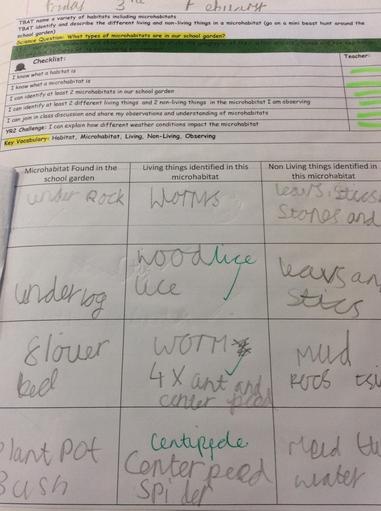 Friday 3rd February
TBAT name a variety of habitats including microhabitats
TBAT identify and describe the different living and non-living things in a microhabitat (go on a mini beast hunt around the
school garden)
Science Question: What types of microhabitats are in our school garden?
Checklist:
Teacher:
I know what a habitat is
I know what a microhabitat is
I can identify at least 2 microhabitats in our school garden
I can identify at least 2 different living things and 2 non-living things in the microhabitat I am observing
I can join in class discussion and share my observations and understanding of microhabitats
YR2 Challenge: I can explain how different weather conditions impact the microhabitat
Key Vocabulary: Habitat, Microhabitat, Living, Non-Living, Observing
Microhabitat Found in the
school garden
Living things identified in this
microhabitat
Non Living things identified in
this microhabitat
under Rock
Worms
leavs, Stics
Stones and
under log
woodlice
lice
leavs an
Stics
flouer
bed
worm
4 X ant and
center peed
Mud
Rocs
Plant Pot
Bush
Centipede
Center peed
Spider
Mud
water